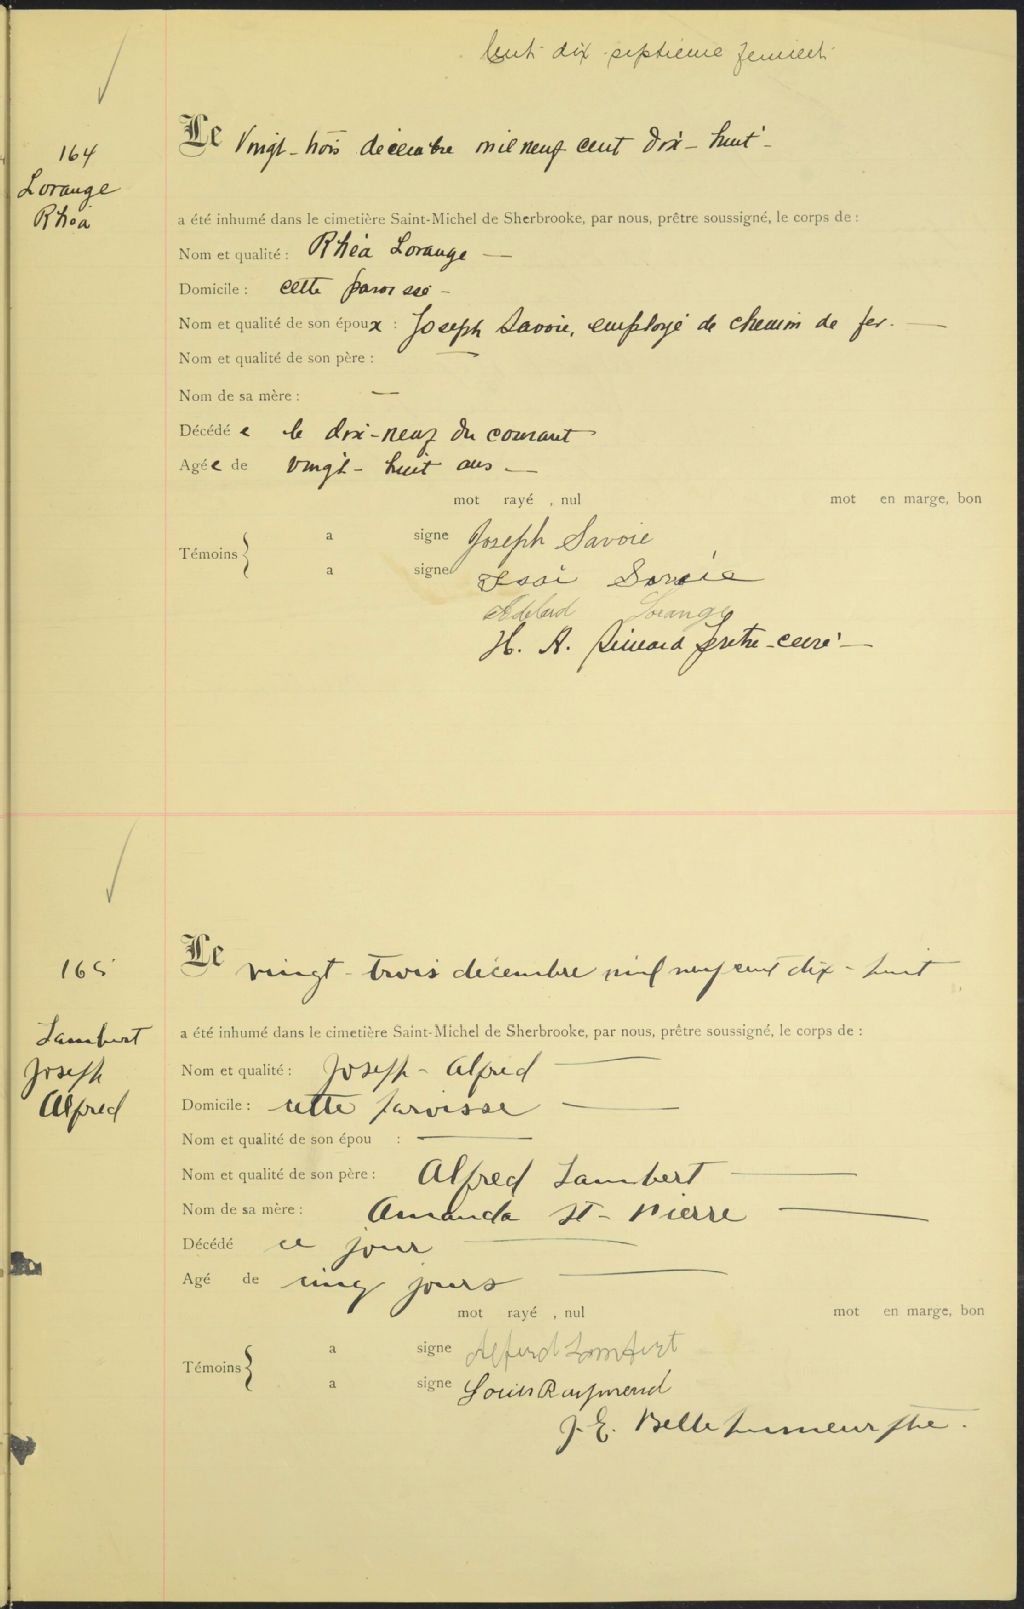 Cent dix septième feuillet
164
Lorange
Rhéa
Le Vingt-trois décembre mil neuf cent dix-huit-
a été inhumé dans le cimetière Saint-Michel de Sherbrooke, par nous, prêtre soussigné, le corps de :
Nom et qualité : Rhéa Lorange —
Domicile : cette paroisse -
Nom et qualité de son époux : Joseph Savoie, employé de chemin de fer. —
Nom et qualité de son père : —
Nom de sa mère : —
Décédée le dix-neuf du courant
Agée de vingt-huit ans —
mot rayé , nul mot en marge, bon
Témoins { a signe Joseph Savoie
a signe Savoie
Adelard Lorange
H. A. Simard prêtre-curé —
165
Lambert
Joseph
Alfred
Le vingt-trois décembre mil neuf cent dix-huit
a été inhumé dans le cimetière Saint-Michel de Sherbrooke, par nous, prêtre soussigné, le corps de :
Nom et qualité : Joseph-Alfred —
Domicile : cette paroisse —
Nom et qualité de son épou : —
Nom et qualité de son père : Alfred Lambert —
Nom de sa mère : Amanda St-Pierre —
Décédé ce jour —
Agé de cinq jours —
mot rayé , nul mot en marge, bon
Témoins { a signe Alfred Lambert
a signe Louis Raymond
J. E. Bellehumeur ptre.